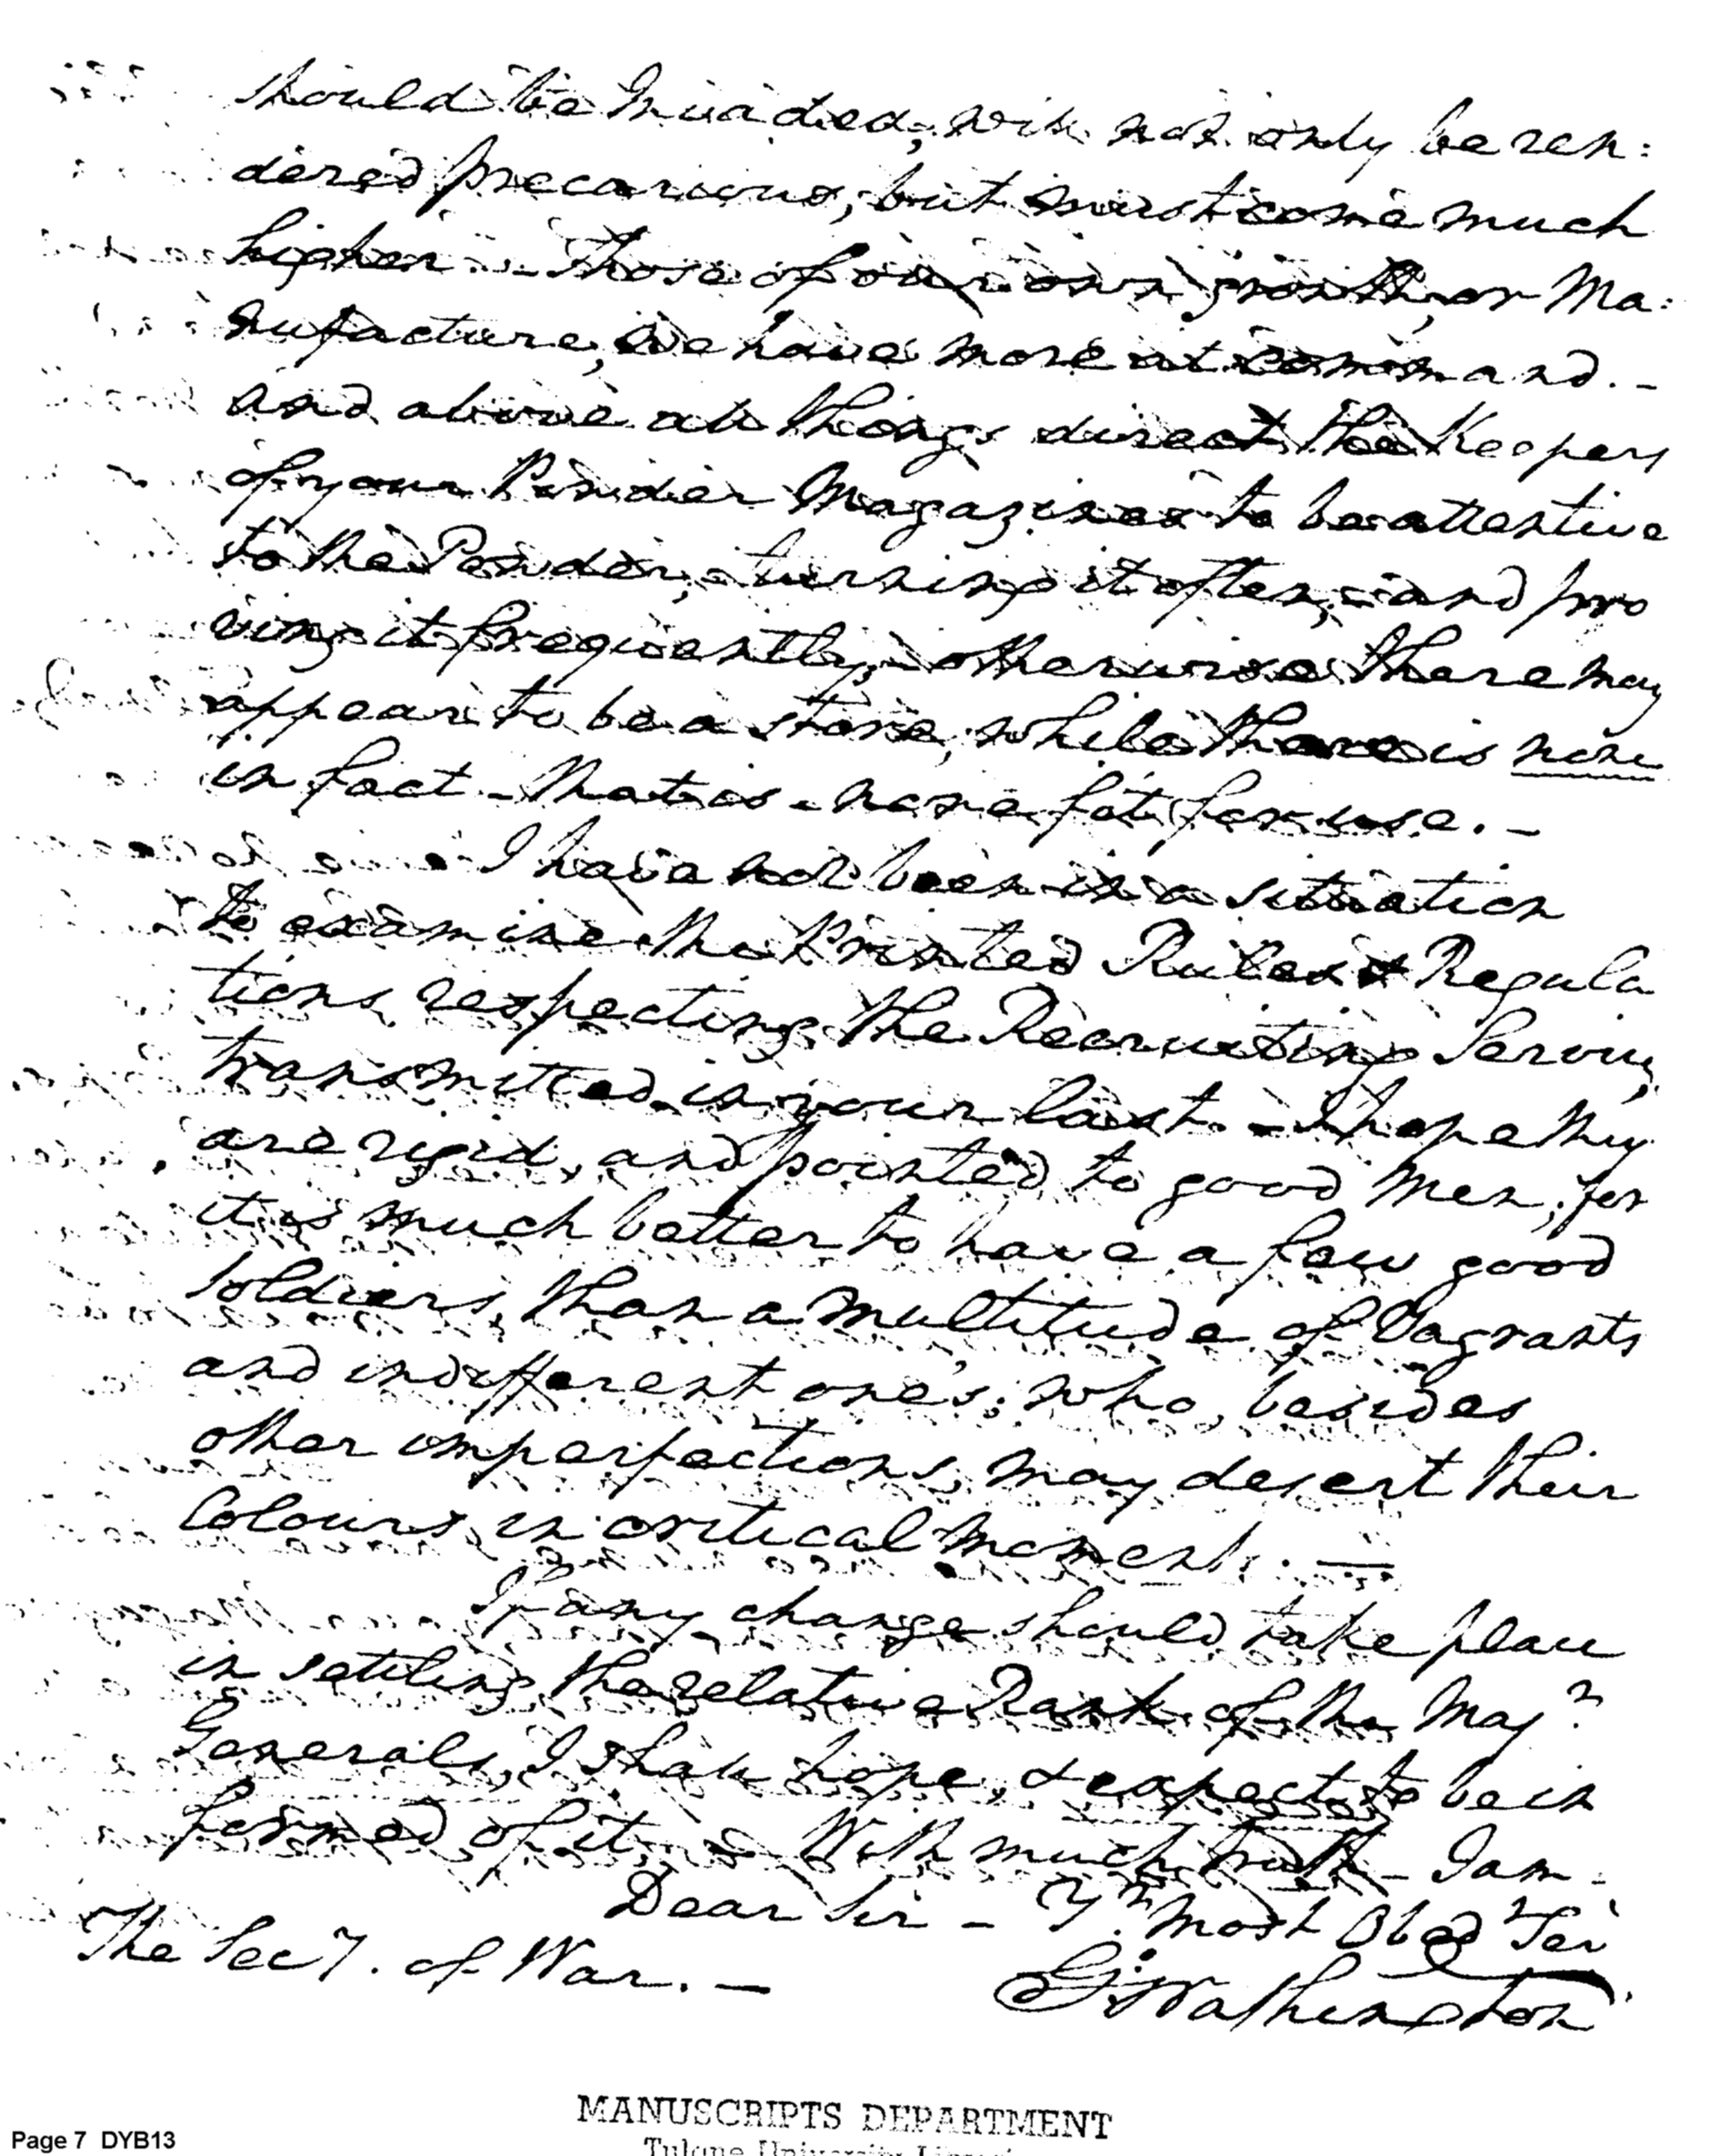 should be Invaded, will not only be ren:
dered precarious, but must come much
higher. – Those of our own growth, or Ma:
nufacture, we have more at command. –
and above all things direct the Keepers
of your Powder Magazines to be attentive
to the Powder, – turning it often, – and pro
ving it frequently, – otherwise there may
appear to be a store, while there is none
in fact – that is – none fit for use. –
I have not been in a situation
to examine the Printed Rules & Regula
tions respecting the Recruiting Service,
transmitted in your last. – I hope they
are rigid, and pointed to good Men; for
it is much better to have a few good
Soldiers, than a multitude of Vagrants
and indifferent ones; who, besides
other imperfections, may desert their
Colours in critical moments. —
If any change should take place
in settling the relative Rank of the Majr
Generals, I shall hope, & expect to be in
formed of it. – With much truth – I am –
Dear Sir – Yr Most Obedt Ser
The Secy. of War. –
Go: Washington
MANUSCRIPTS DEPARTMENT
Tulane University
Page 7 DYB13